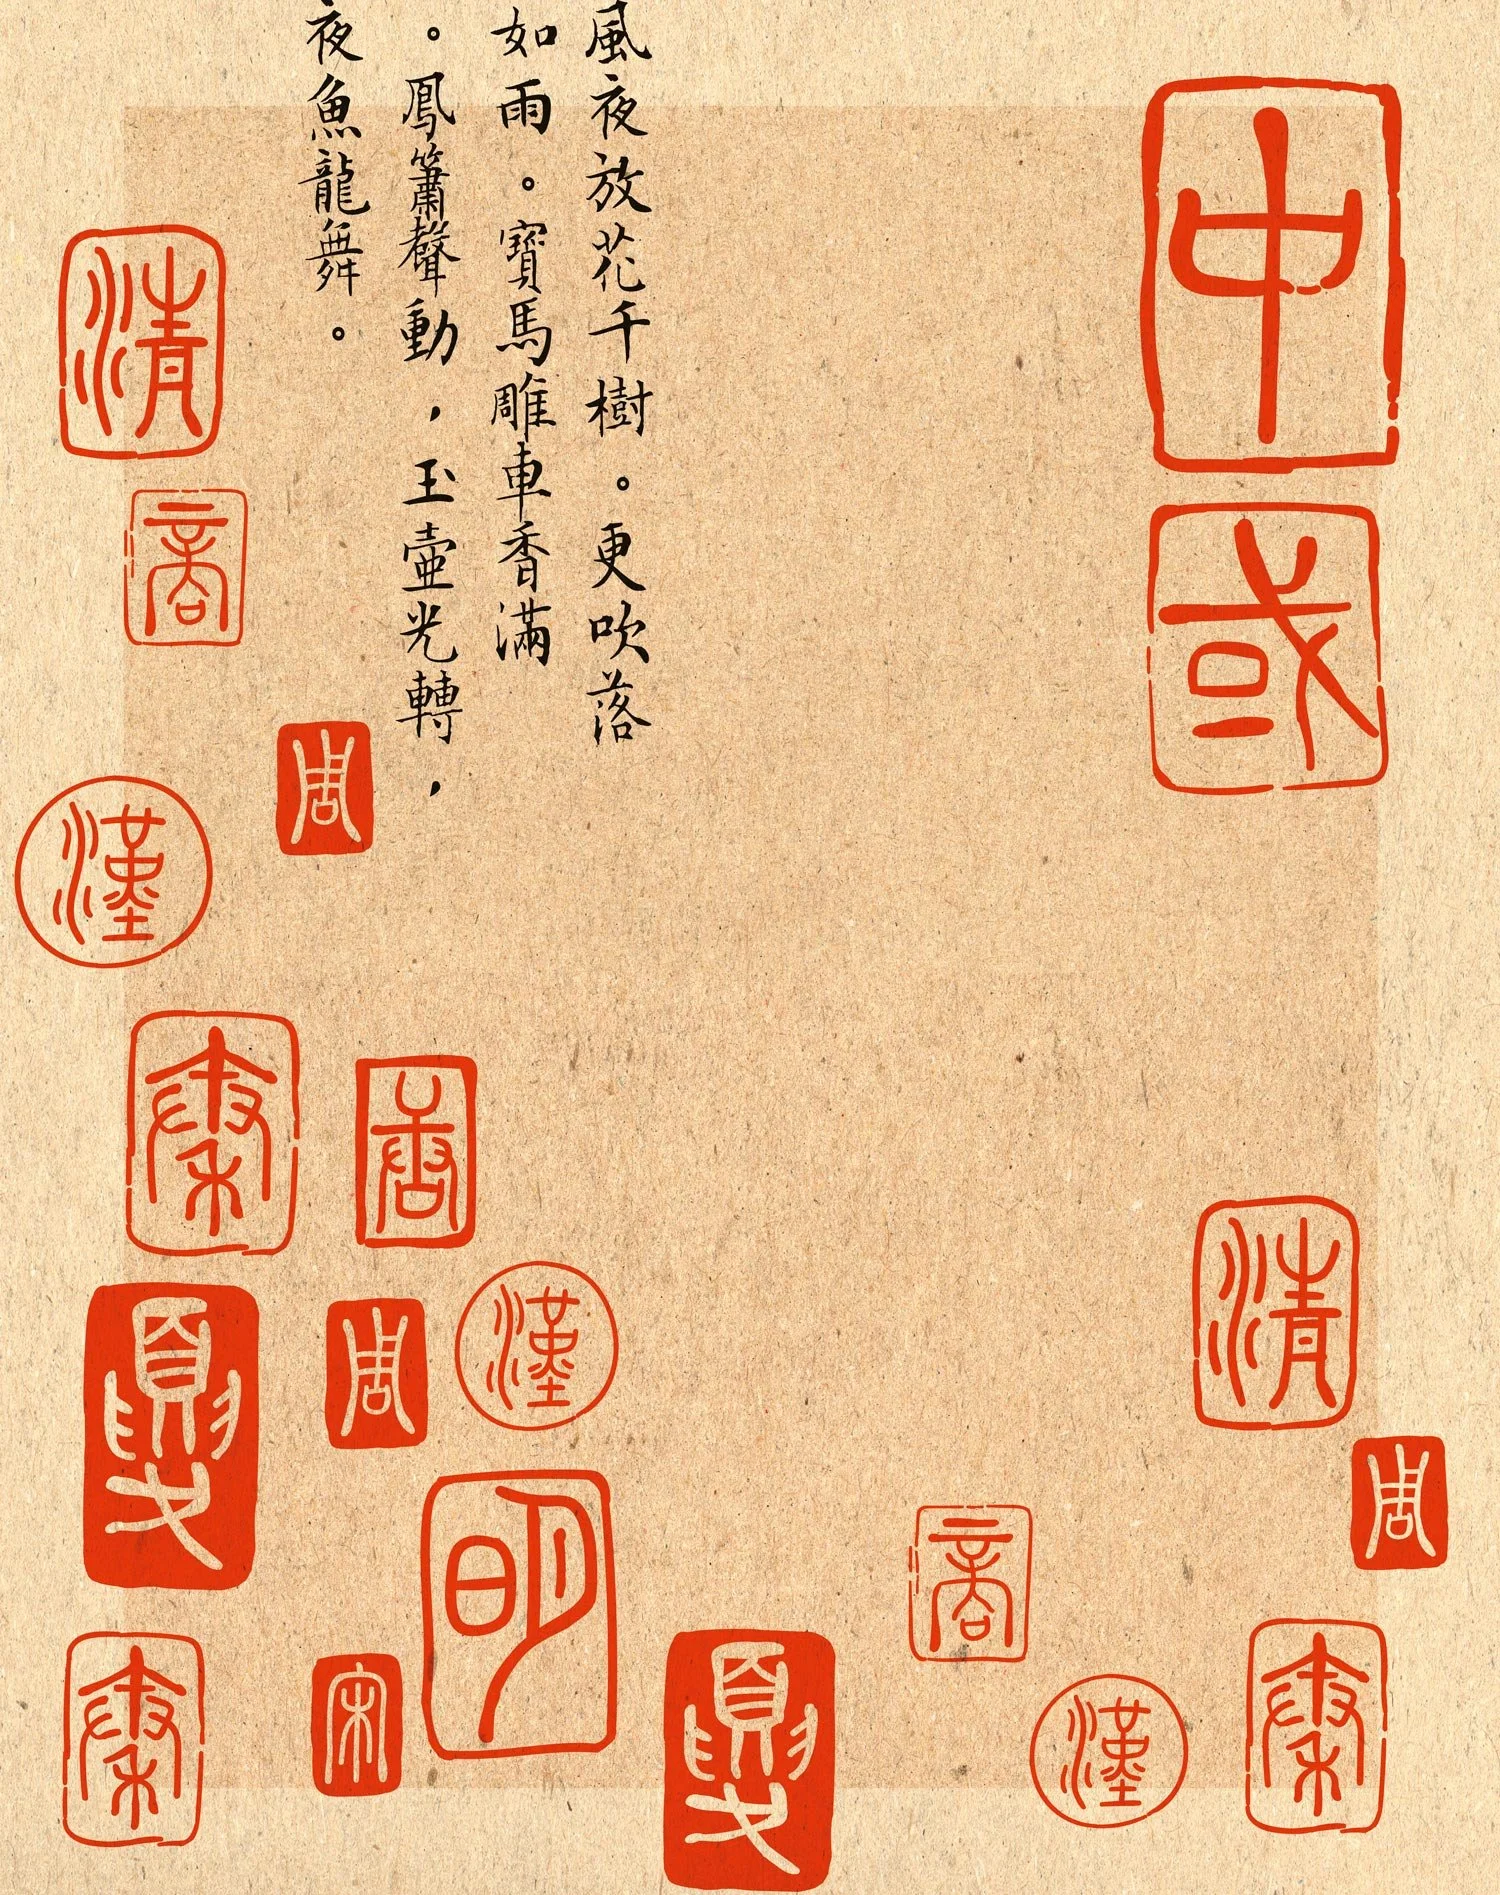 中
國
風夜放花千樹。更吹落
如雨。寶馬雕車香滿
。鳳簫聲動，玉壺光轉，
夜魚龍舞。
清
商
周
漢
秦
唐
夏
周
漢
明
秦
宋
夏
清
周
商
漢
秦